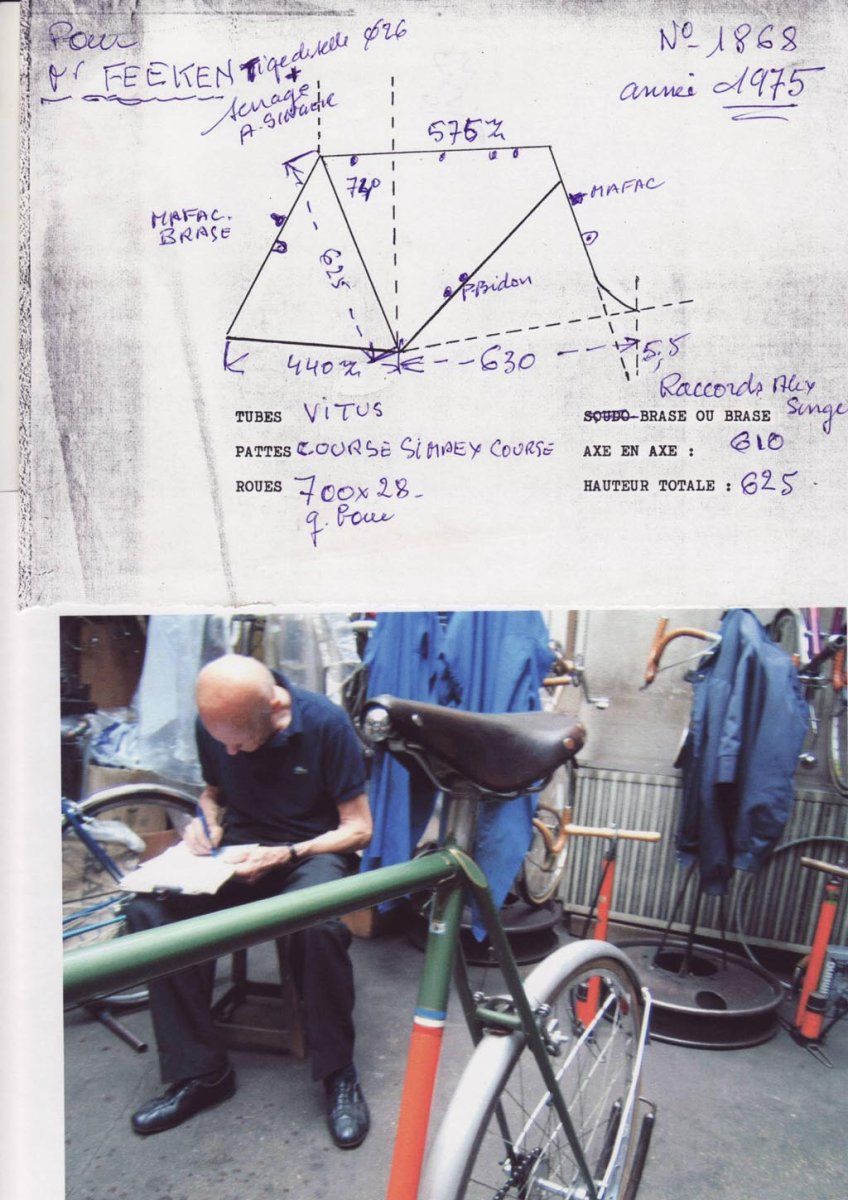 Pour
Mr FEEKEN Tige de selle ø26
+
serrage
A. SINGER
No 1868
année 1975
575 %
73°
MAFAC.
BRASE
625
MAFAC
P. Bidon
440 %
630
5,5
Raccords Alex
Singer
TUBES VITUS
SOUDO-BRASE OU BRASE
PATTES COURSE SIMPLEX COURSE
AXE EN AXE : 610
ROUES 700x28
HAUTEUR TOTALE : 625